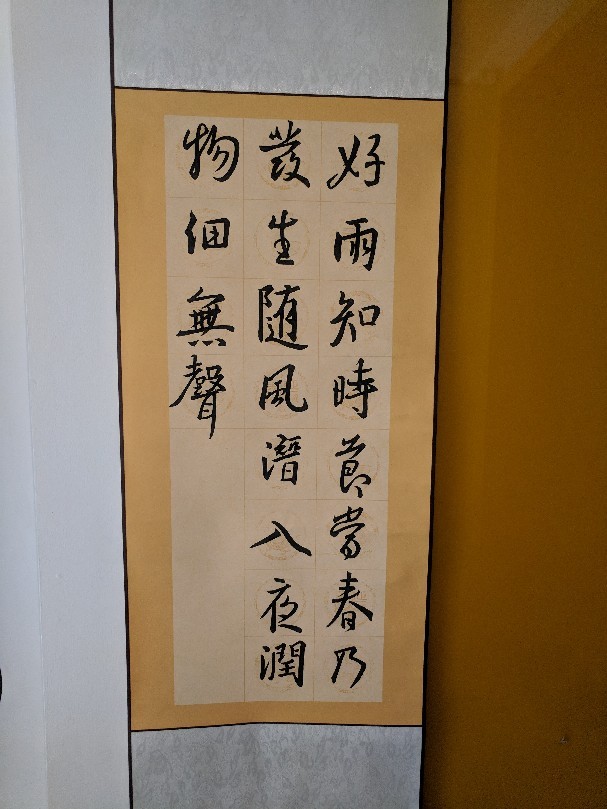 好雨知時節當春乃
發生随風潛入夜潤
物細無聲